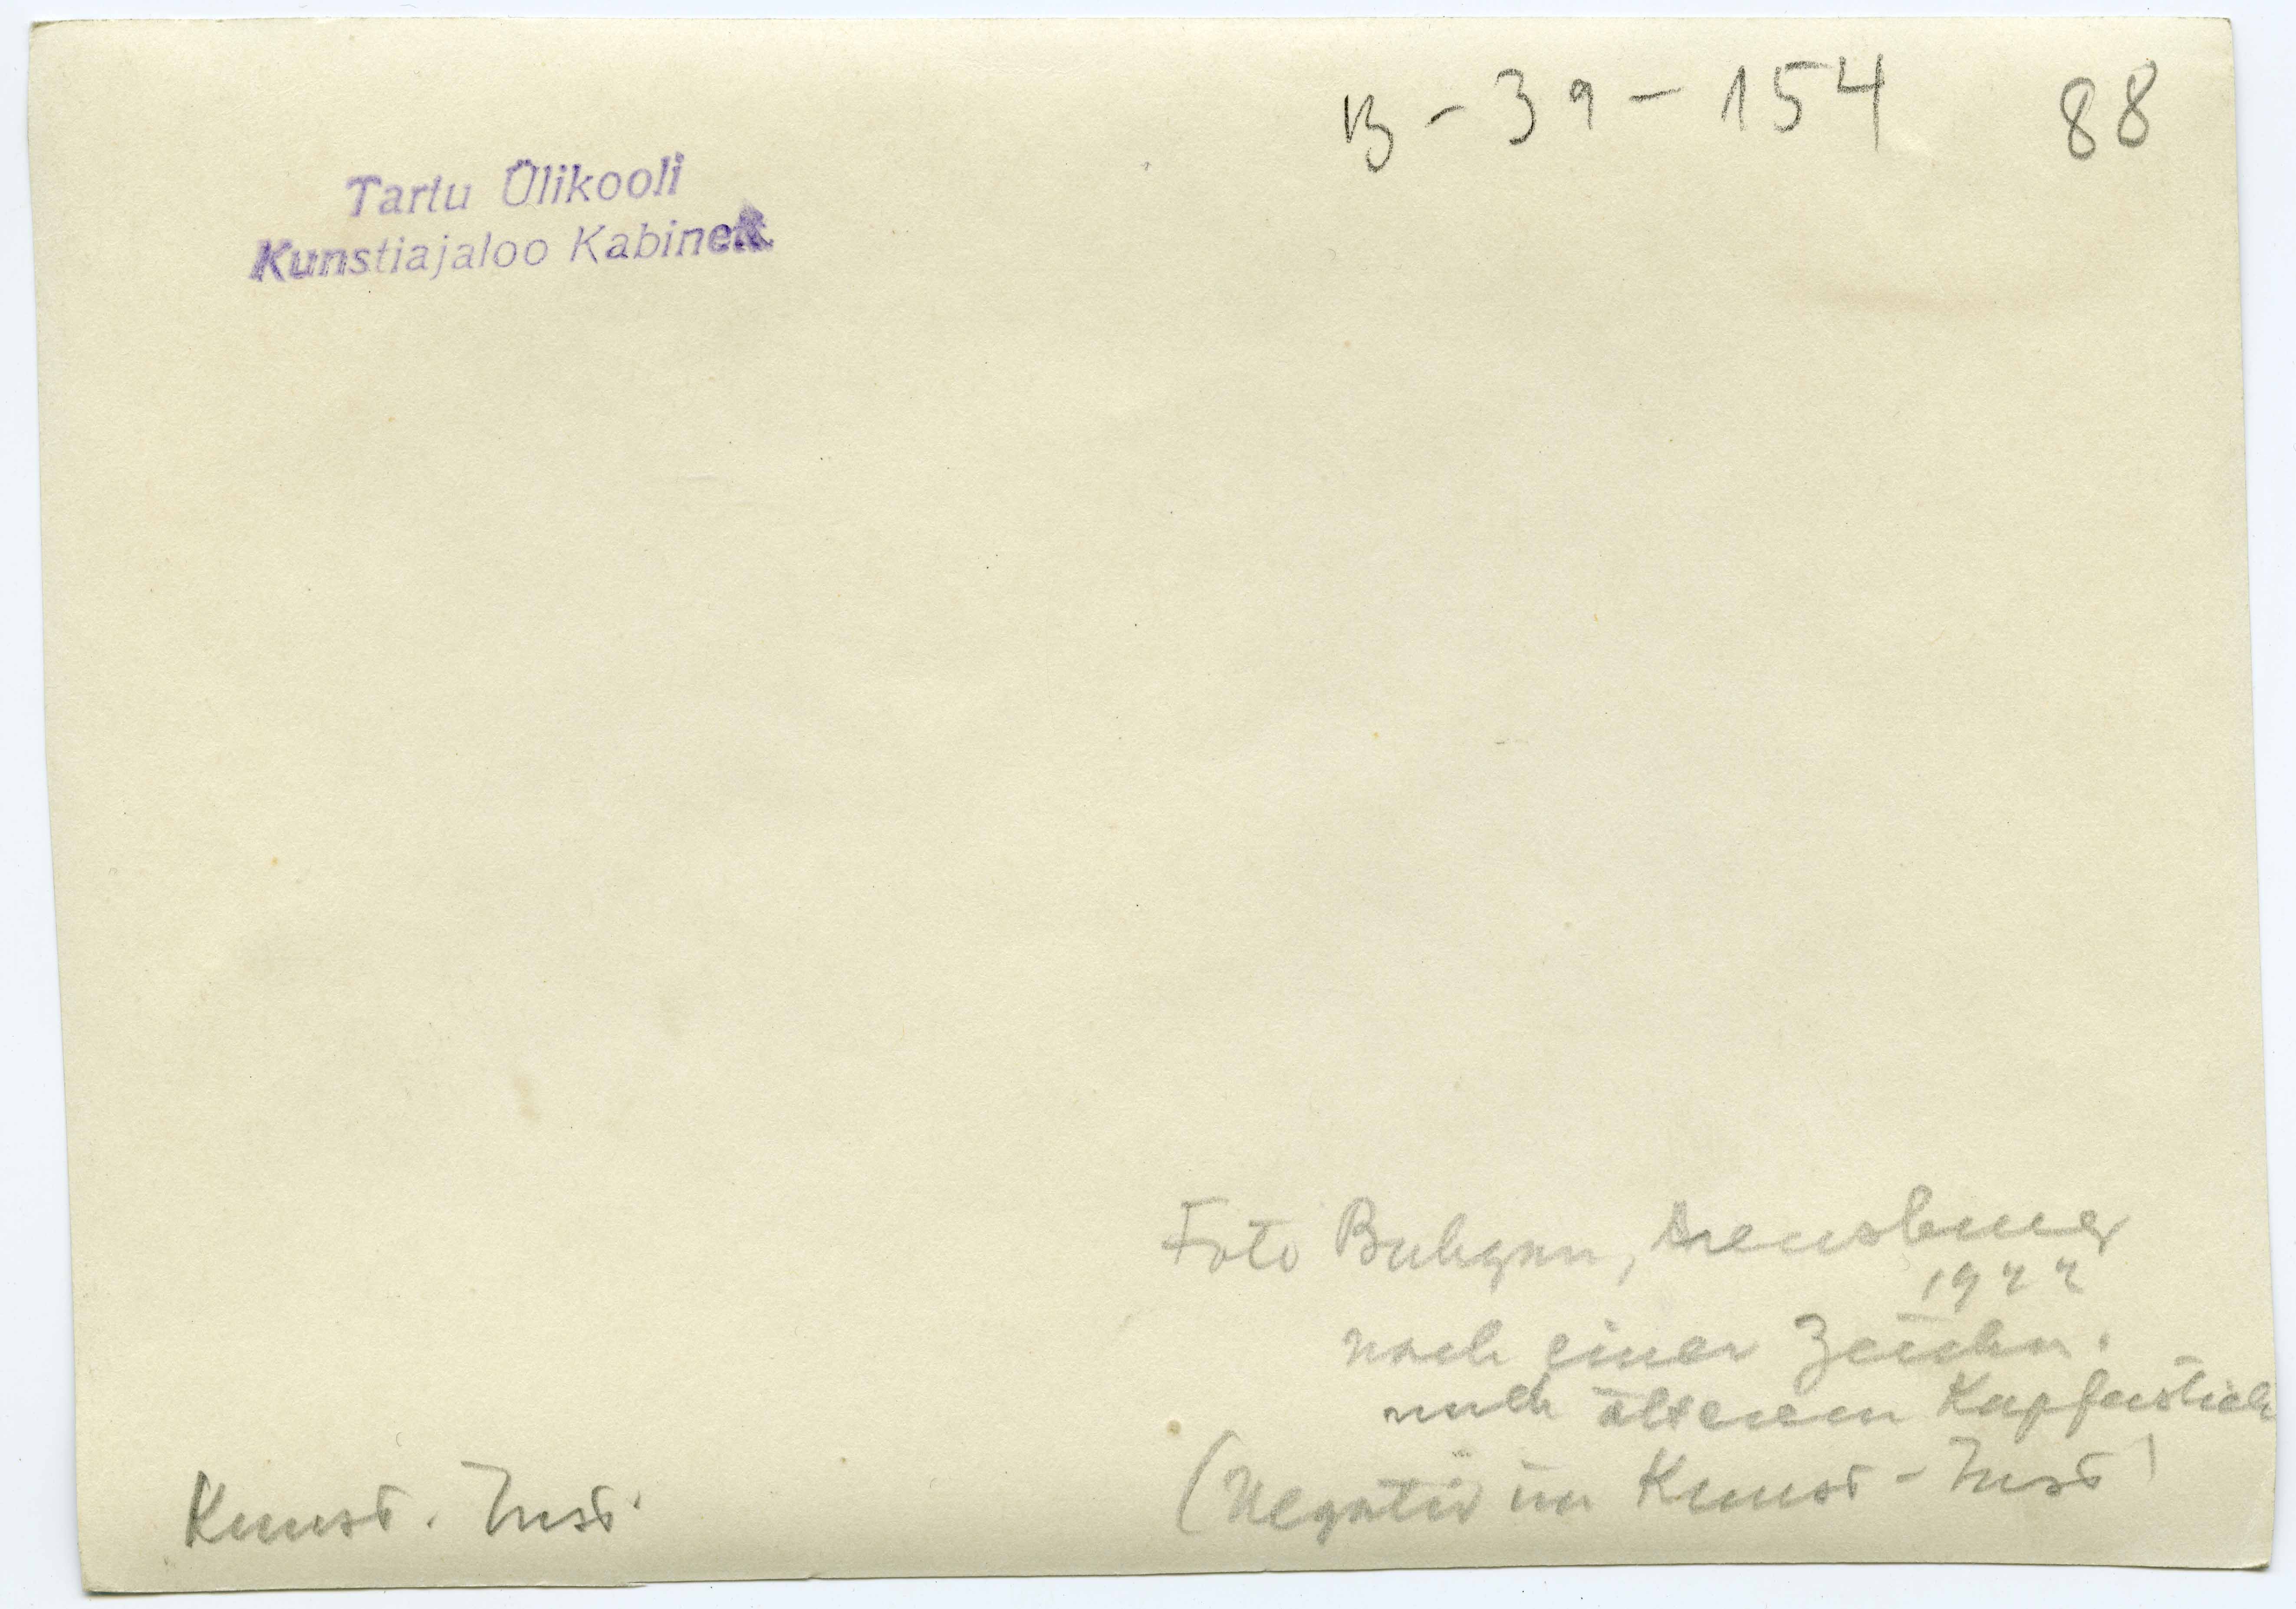 B-39-154 88
Tartu Ülikooli
Kunstiajaloo Kabinett
Foto Arensburg
1922
nach einer Zeichn.
nach älterem Kupferstich
(Negativ im Kunst-Inst)
Kunst. Inst.